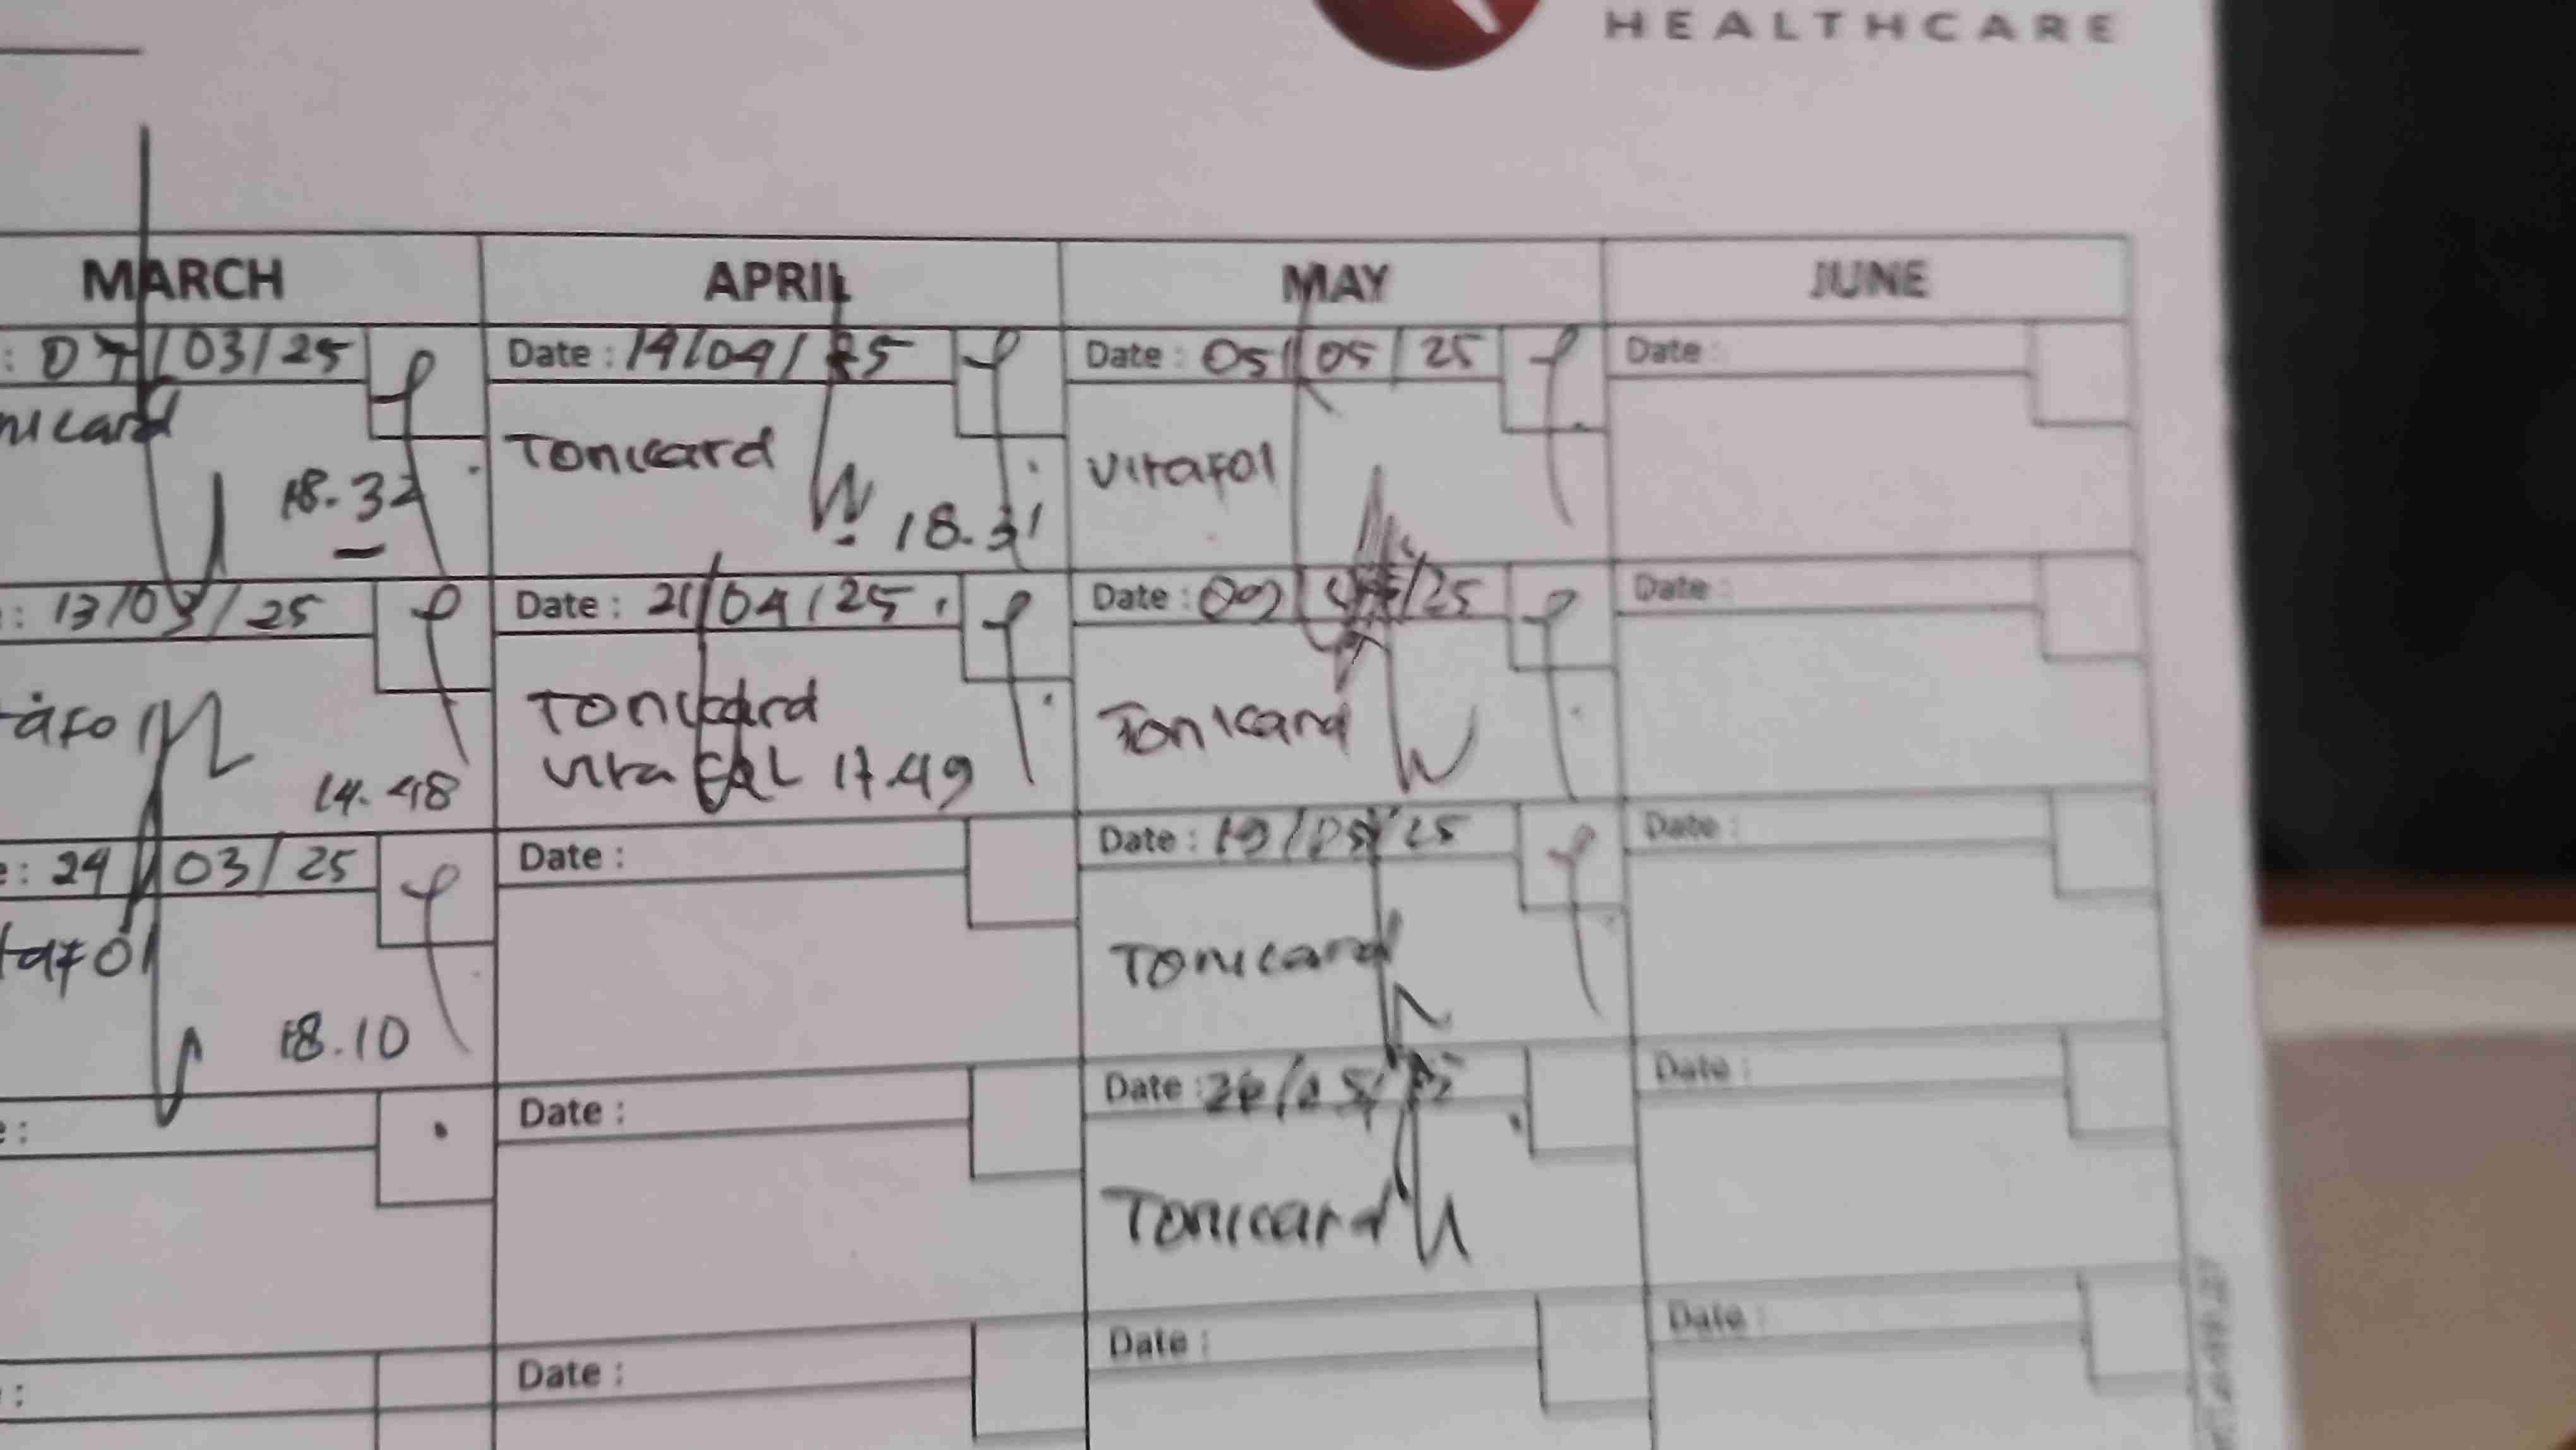 HEALTHCARE
MARCH APRIL MAY JUNE
: 07/03/25 Date : 14/04/25 Date : 05/05/25 Date :
nicard Tonicard Virafol
18.32 18.31
: 13/03/25 Date : 21/04/25 Date : 25 Date :
Tonicard Tonicard
14.48 virafol 17.49
e: 24/03/25 Date : Date : 19/05/25 Date :
tafol Tonicard
18.10
e: Date : Date : Date :
Tonicard
: Date : Date : Date :